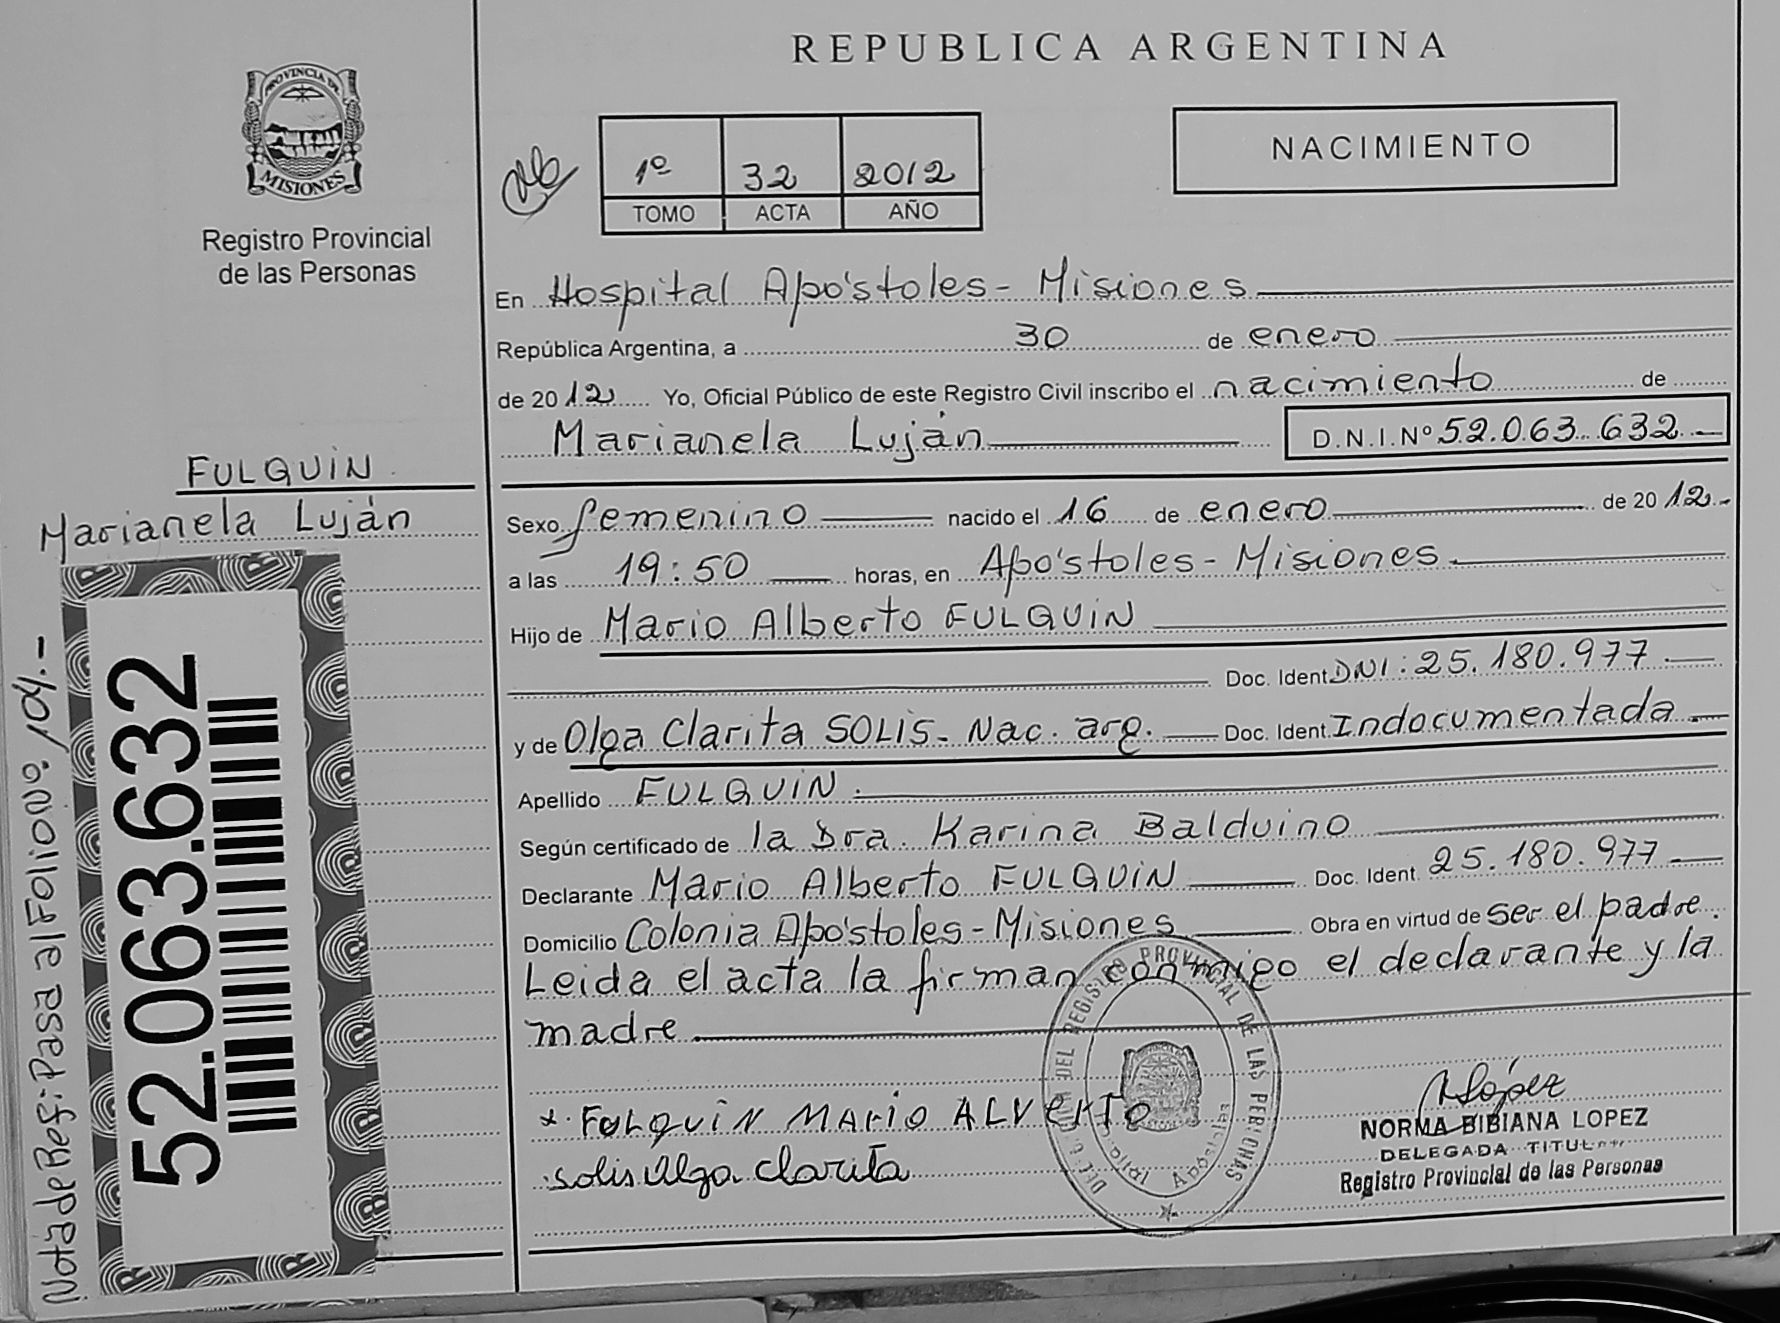 REPUBLICA ARGENTINA
PROVINCIA DE
MISIONES
Registro Provincial
de las Personas
1º 32 2012
TOMO ACTA AÑO
NACIMIENTO
En Hospital Apóstoles - Misiones
República Argentina, a 30 de enero
de 2012 Yo, Oficial Público de este Registro Civil inscribo el nacimiento de
Marianela Luján D.N.I.Nº 52.063.632
FULQUIN
Marianela Luján
Sexo femenino nacido el 16 de enero de 2012.-
a las 19:50 horas, en Apóstoles - Misiones
Hijo de Mario Alberto FULQUIN
Doc. Ident. DNI: 25.180.977
y de Olga Clarita SOLIS. Nac. arg. Doc. Ident. Indocumentada
Apellido FULQUIN.
Según certificado de la Dra. Karina Balduino
Declarante Mario Alberto FULQUIN Doc. Ident. 25.180.977
Domicilio Colonia Apóstoles - Misiones Obra en virtud de ser el padre.
Leida el acta la firman conmigo el declarante y la
madre
x. FULQUIN MARIO ALVERTO
solis Olga Clarita
NLópez
NORMA BIBIANA LOPEZ
DELEGADA TITULAR
Registro Provincial de las Personas
DEL REGISTRO PROVINCIAL DE LAS PERSONAS
Apóstoles
52.063.632
Nota de Ref: Pasa al Folio Nº 104.-